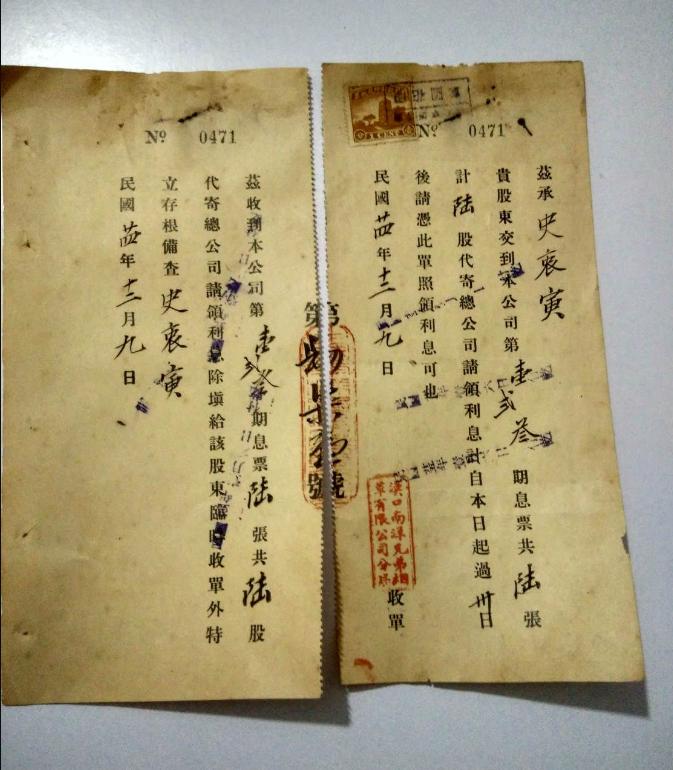 Nº 0471
茲承史衷寅
貴股東交到本公司第壹弍叁期息票共陸張
計陸股代寄總公司請領利息計自本日起過卅日
後請憑此單照領利息可也
民國廿四年十二月九日
漢口南洋兄弟烟
草有限公司分
收單
1 CENT
第
號
Nº 0471
茲收到本公司第壹弍叁期息票陸張共陸股
代寄總公司請領利息除塡給該股東臨時收單外特
立存根備查史衷寅
民國廿四年十二月九日